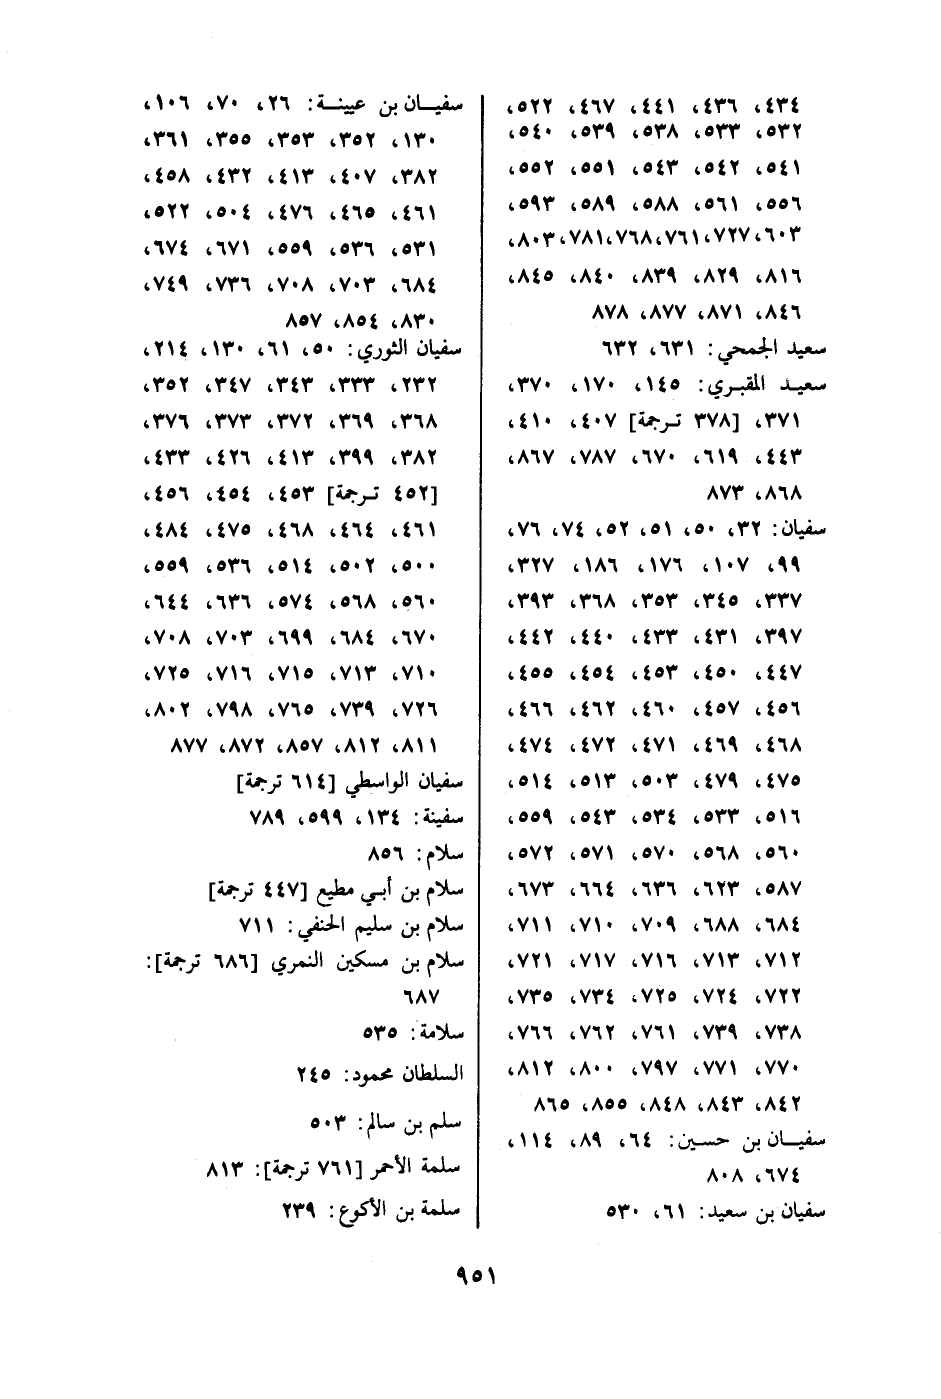 ٤٣٤، ٤٣٦، ٤٤١، ٤٦٧، ٥٢٢،
٥٣٢، ٥٣٣، ٥٣٨، ٥٣٩، ٥٤٠،
٥٤١، ٥٤٢، ٥٤٣، ٥٥١، ٥٥٢،
٥٥٦، ٥٦١، ٥٨٨، ٥٨٩، ٥٩٣،
٦٠٣، ٧٢٧، ٧٦١، ٧٦٨، ٧٨١، ٨٠٣،
٨١٦، ٨٢٩، ٨٣٩، ٨٤٠، ٨٤٥،
٨٤٦، ٨٧١، ٨٧٧، ٨٧٨
سعيد الجمحي: ٦٣١، ٦٣٢
سعيـد المقبري: ١٤٥، ١٧٠، ٣٧٠،
٣٧١، [٣٧٨ تـرجمة] ٤٠٧، ٤١٠،
٤٤٣، ٦١٩، ٦٧٠، ٧٨٧، ٨٦٧،
٨٦٨، ٨٧٣
سفيان: ٣٢، ٥٠، ٥١، ٥٢، ٧٤، ٧٦،
٩٩، ١٠٧، ١٧٦، ١٨٦، ٣٢٧،
٣٣٧، ٣٤٥، ٣٥٣، ٣٦٨، ٣٩٣،
٣٩٧، ٤٣١، ٤٣٣، ٤٤٠، ٤٤٢،
٤٤٧، ٤٥٠، ٤٥٣، ٤٥٤، ٤٥٥،
٤٥٦، ٤٥٧، ٤٦٠، ٤٦٢، ٤٦٦،
٤٦٨، ٤٦٩، ٤٧١، ٤٧٢، ٤٧٤،
٤٧٥، ٤٧٩، ٥٠٣، ٥١٣، ٥١٤،
٥١٦، ٥٣٣، ٥٣٤، ٥٤٣، ٥٥٩،
٥٦٠، ٥٦٨، ٥٧٠، ٥٧١، ٥٧٢،
٥٨٧، ٦٢٣، ٦٣٦، ٦٦٤، ٦٧٣،
٦٨٤، ٦٨٨، ٧٠٩، ٧١٠، ٧١١،
٧١٢، ٧١٣، ٧١٦، ٧١٧، ٧٢١،
٧٢٢، ٧٢٤، ٧٢٥، ٧٣٤، ٧٣٥،
٧٣٨، ٧٣٩، ٧٦١، ٧٦٢، ٧٦٦،
٧٧٠، ٧٧١، ٧٩٧، ٨٠٠، ٨١٢،
٨٤٢، ٨٤٣، ٨٤٨، ٨٥٥، ٨٦٥
سفيـان بن حسين: ٦٤، ٨٩، ١١٤،
٦٧٤، ٨٠٨
سفيان بن سعيد: ٦١، ٥٣٠
سفيــان بن عيينــة: ٢٦، ٧٠، ١٠٦،
١٣٠، ٣٥٢، ٣٥٣، ٣٥٥، ٣٦١،
٣٨٢، ٤٠٧، ٤١٣، ٤٣٢، ٤٥٨،
٤٦١، ٤٦٥، ٤٧٦، ٥٠٤، ٥٢٢،
٥٣١، ٥٣٦، ٥٥٩، ٦٧١، ٦٧٤،
٦٨٤، ٧٠٣، ٧٠٨، ٧٣٦، ٧٤٩،
٨٣٠، ٨٥٤، ٨٥٧
سفيان الثوري: ٥٠، ٦١، ١٣٠، ٢١٤،
٢٣٢، ٣٣٣، ٣٤٣، ٣٤٧، ٣٥٢،
٣٦٨، ٣٦٩، ٣٧٢، ٣٧٣، ٣٧٦،
٣٨٢، ٣٩٩، ٤١٣، ٤٢٦، ٤٣٣،
[٤٥٢ تـرجمة] ٤٥٣، ٤٥٤، ٤٥٦،
٤٦١، ٤٦٤، ٤٦٨، ٤٧٥، ٤٨٤،
٥٠٠، ٥٠٢، ٥١٤، ٥٣٦، ٥٥٩،
٥٦٠، ٥٦٨، ٥٧٤، ٦٣٦، ٦٤٤،
٦٧٠، ٦٨٤، ٦٩٩، ٧٠٣، ٧٠٨،
٧١٠، ٧١٣، ٧١٥، ٧١٦، ٧٢٥،
٧٢٦، ٧٣٩، ٧٦٥، ٧٩٨، ٨٠٢،
٨١١، ٨١٢، ٨٥٧، ٨٧٢، ٨٧٧
سفيان الواسطي [٦١٤ ترجمة]
سفينة: ١٣٤، ٥٩٩، ٧٨٩
سلام: ٨٥٦
سلام بن أبـي مطيع [٤٤٧ ترجمة]
سلام بن سليم الحنفي: ٧١١
سلام بن مسكين النمري [٦٨٦ ترجمة]:
٦٨٧
سلامة: ٥٣٥
السلطان محمود: ٢٤٥
سلم بن سالم: ٥٠٣
سلمة الأحمر [٧٦١ ترجمة]: ٨١٣
سلمة بن الأكوع: ٢٣٩
٩٥١